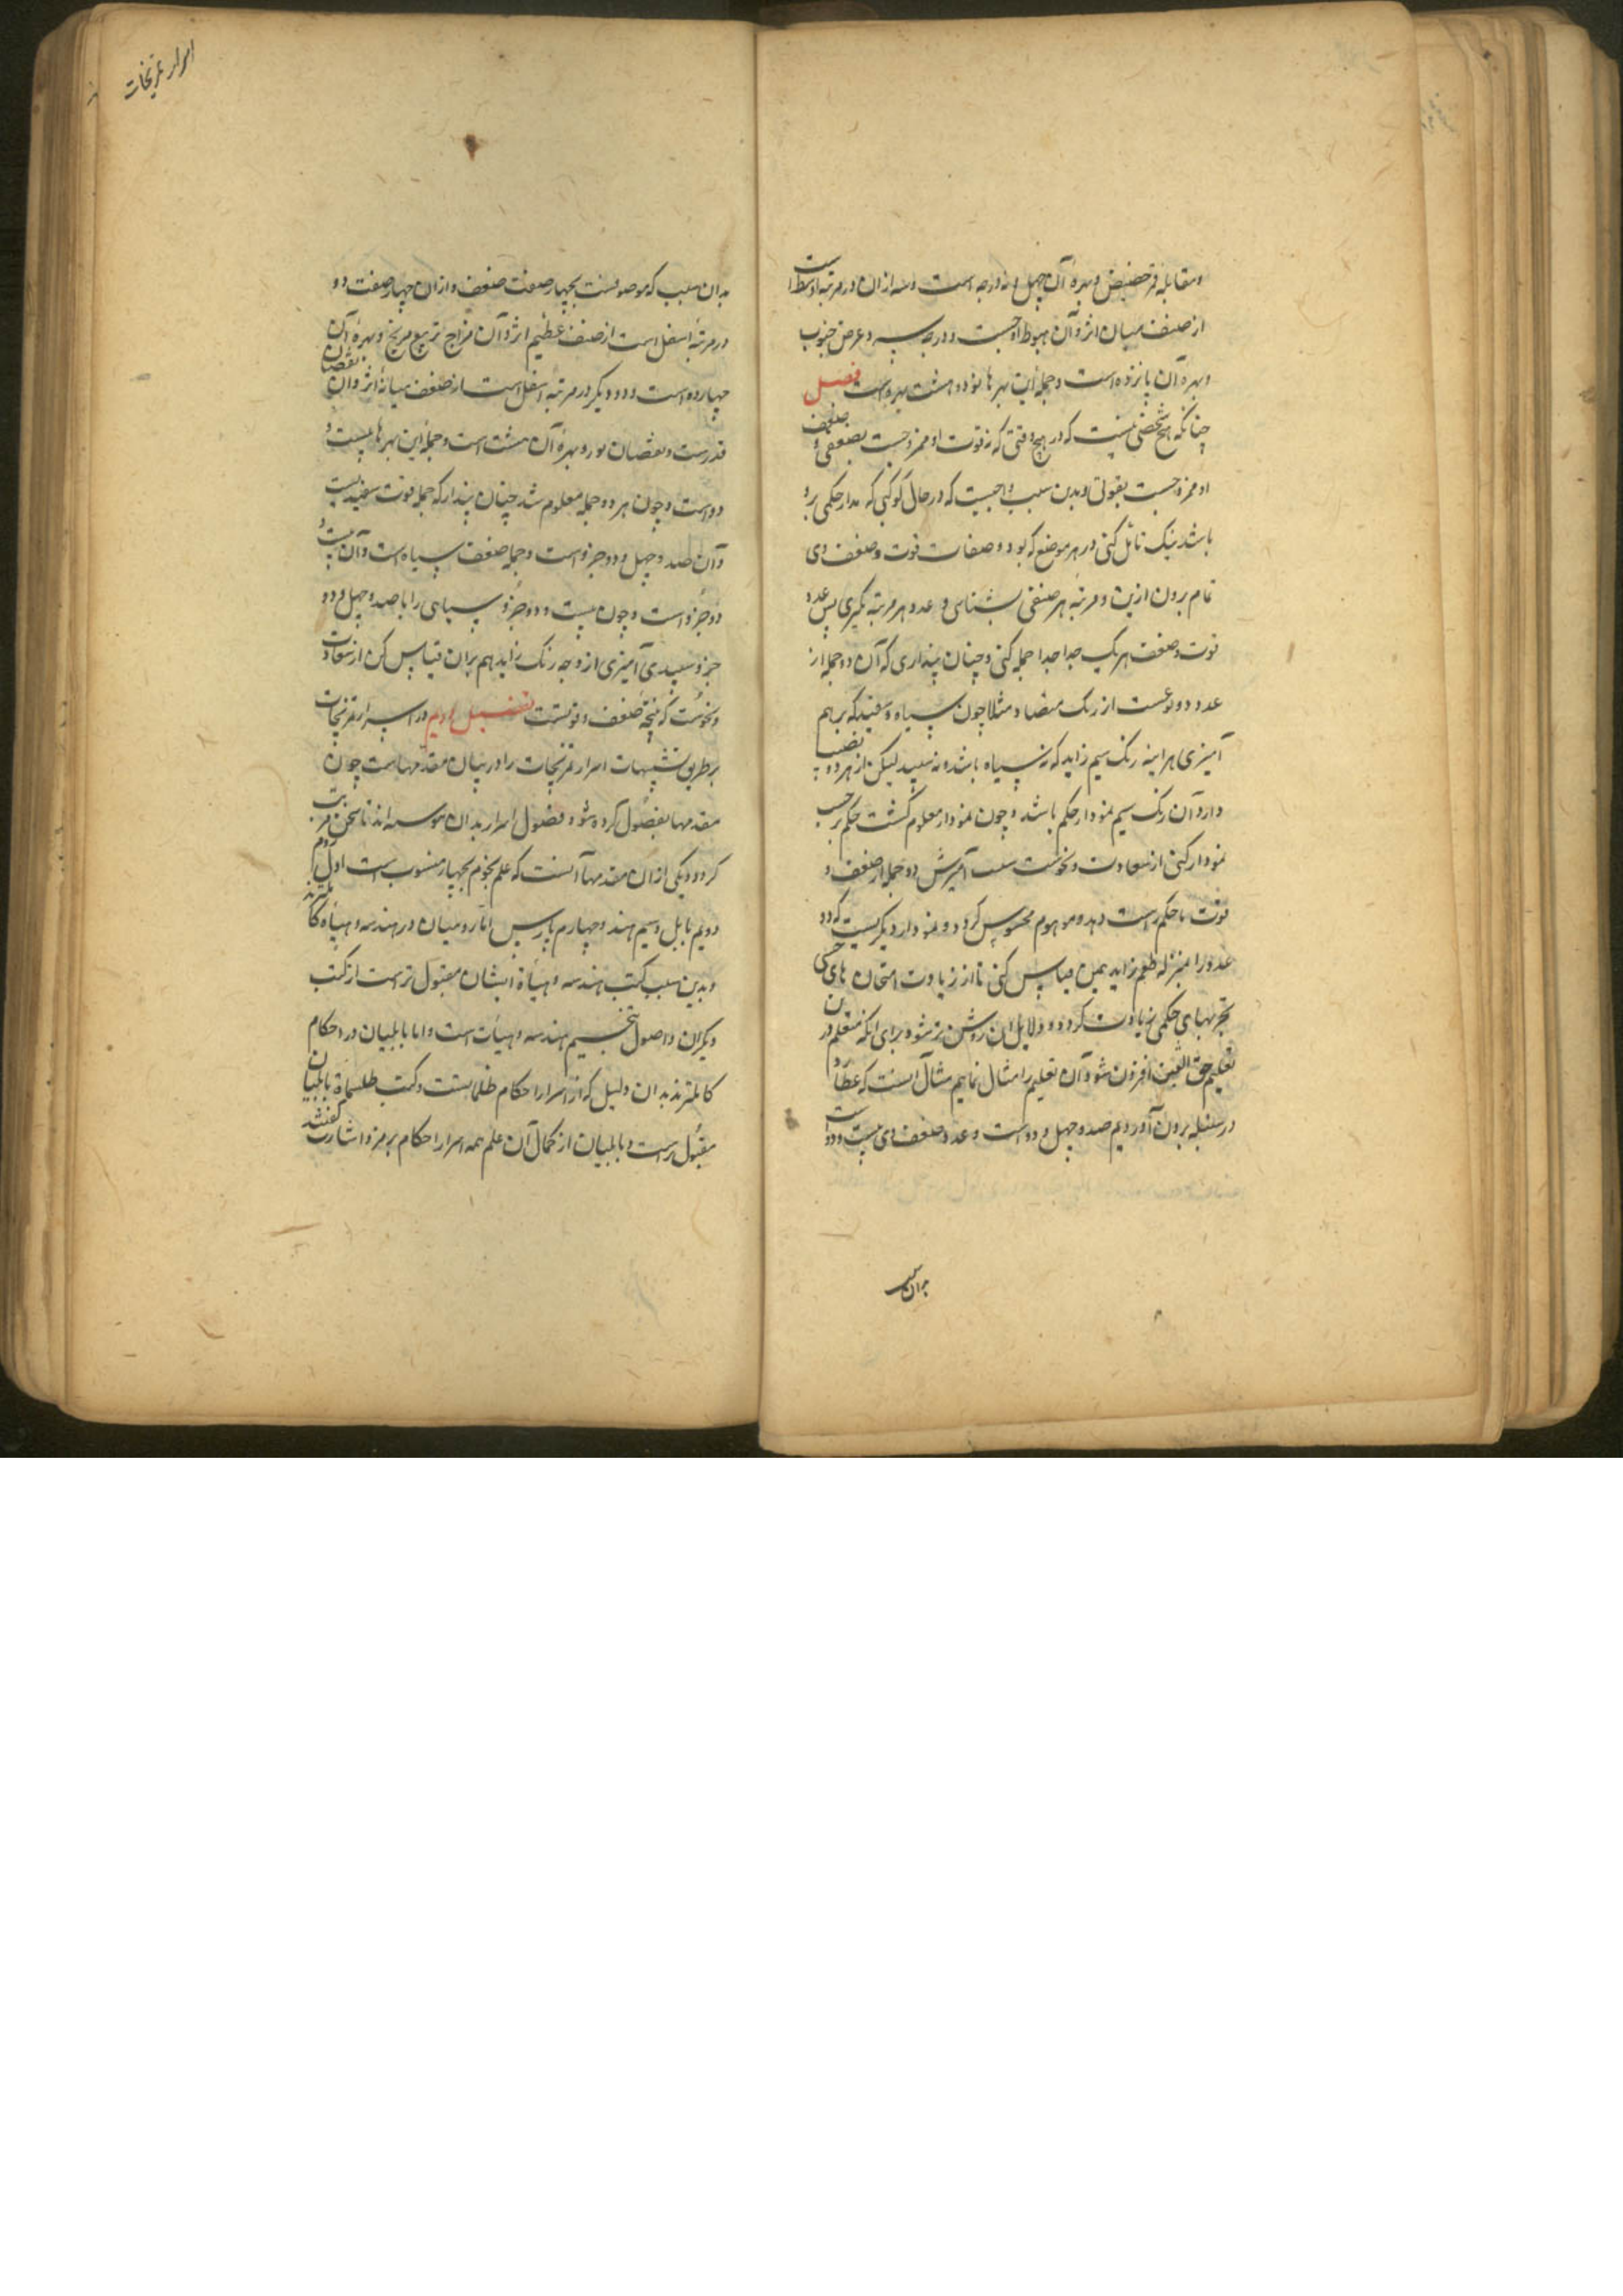 و مقابله قمر حضیض و بهره آن چهل و نه درجه است و سه ازان در مرتبه اوسط است
از صنف میان اثر و آن هبوط اوجست و درجه سیه و عرض جنوب
و بهره آن پانزده است و جمله این بهرها نود و هشت بهره است فصل
چنانکه هیچ شخصی نیست که در هیچ وقتی که نه قوت او ممزوجست بضعفی و ضعف
او ممزوجست بقوتی و بدین سبب واجبست که در حال کوکبی که مدار حکمی برو
باشد نیک تأمل کنی در هر موضع که بود و صفات قوت و ضعف وی
تمام برون ازین و مرتبه هر صنفی بشناسی و عدد هر مرتبه بگیری پس عدد
قوت و ضعف هر یک جدا جدا جمله کنی و چنان پنداری که آن دو جمله از
عدد دو نوعست از رنک متضاد مثلا چون سیاه و سفید که بر هم
آمیزی هراینه رنک سیم زاید که نه سیاه باشد و نه سپید لیکن از هر دو نصیب
دارد آن رنک سیم نمودار حکم باشد و چون نمودار معلوم کشت حکم بر حسب
نمودار کنی از سعادت و نحوست سبب آمیزش دو جمله از ضعف و
قوت تا حکم راست دهد و موهوم محسوس کردد و نمودار دیکریست که دو
عدد را بمنزله طعم زاید بمین قیاس کنی تا از زیادت امتحان های حکمی
تجربهای حکمی زیادت کردد و دلایل ان روشن تر شود برای انکه متعلم در ان
تعلیم حق الیقین افزون شود آن تعلیم را مثال نماییم مثال آنست که عطارد
در سنبله برون آوردیم صد و چهل و دو است و عدد ضعف وی بیست و دو است
بدان سبب
اسرار تمزیجات
بدان سبب که موصوفست بچهار صفت ضعف و ازان چهار صفت دو
در مرتبه اسفل است از صنف عظیم اثر و آن مزاج تربیع مریخ و بهره آن
چهارده است و دو دیکر در مرتبه اسفل است از ضعف میانه اثر و آن نقصان
قدرست و نقصان نور و بهره آن هشت است و جمله این بهرها بیست و
دو است و چون هر دو جمله معلوم شد چنان پندار که جمله قوت سفیدیست
و آن صد و چهل و دو جزو است و جمله ضعف سیاه است و آن بیست و
دو جزو است و چون بیست و دو جزو سیاهی را با صد و چهل و دو
جزو سپیدی آمیزی از و چه رنک زاید هم بران قیاس کن از سعادت
و نحوست که نتیجه ضعف و قوتست فصل دویم در اسرار تمزیجات
بر طریق تشبیهات اسرار تمزیجات را در بیان مقدمهاست چون
مقدمها بفصول کرده شود فصول اسرار بدان پیوسته اند تا سخن مرتب
کردد و یکی ازان مقدمها آنست که علم نجوم بچهار منسوب است اول روم
دویم بابل و سیم هند و چهارم پارس اما رومیان در هندسه و هیأة کاملترند
و بدین سبب کتب هندسه و هیأة ایشان مقبول تر است از کتب
دیکران و اصول تنجیم هندسه و هیأت است و اما بابلیان در احکام
کاملترند بدان دلیل که از اسرار احکام طلسمانست و کتب طلسماة بابلیان
مقبول تر است و بابلیان از کمال آن علم همه اسرار احکام برمز و اشارت کفتند